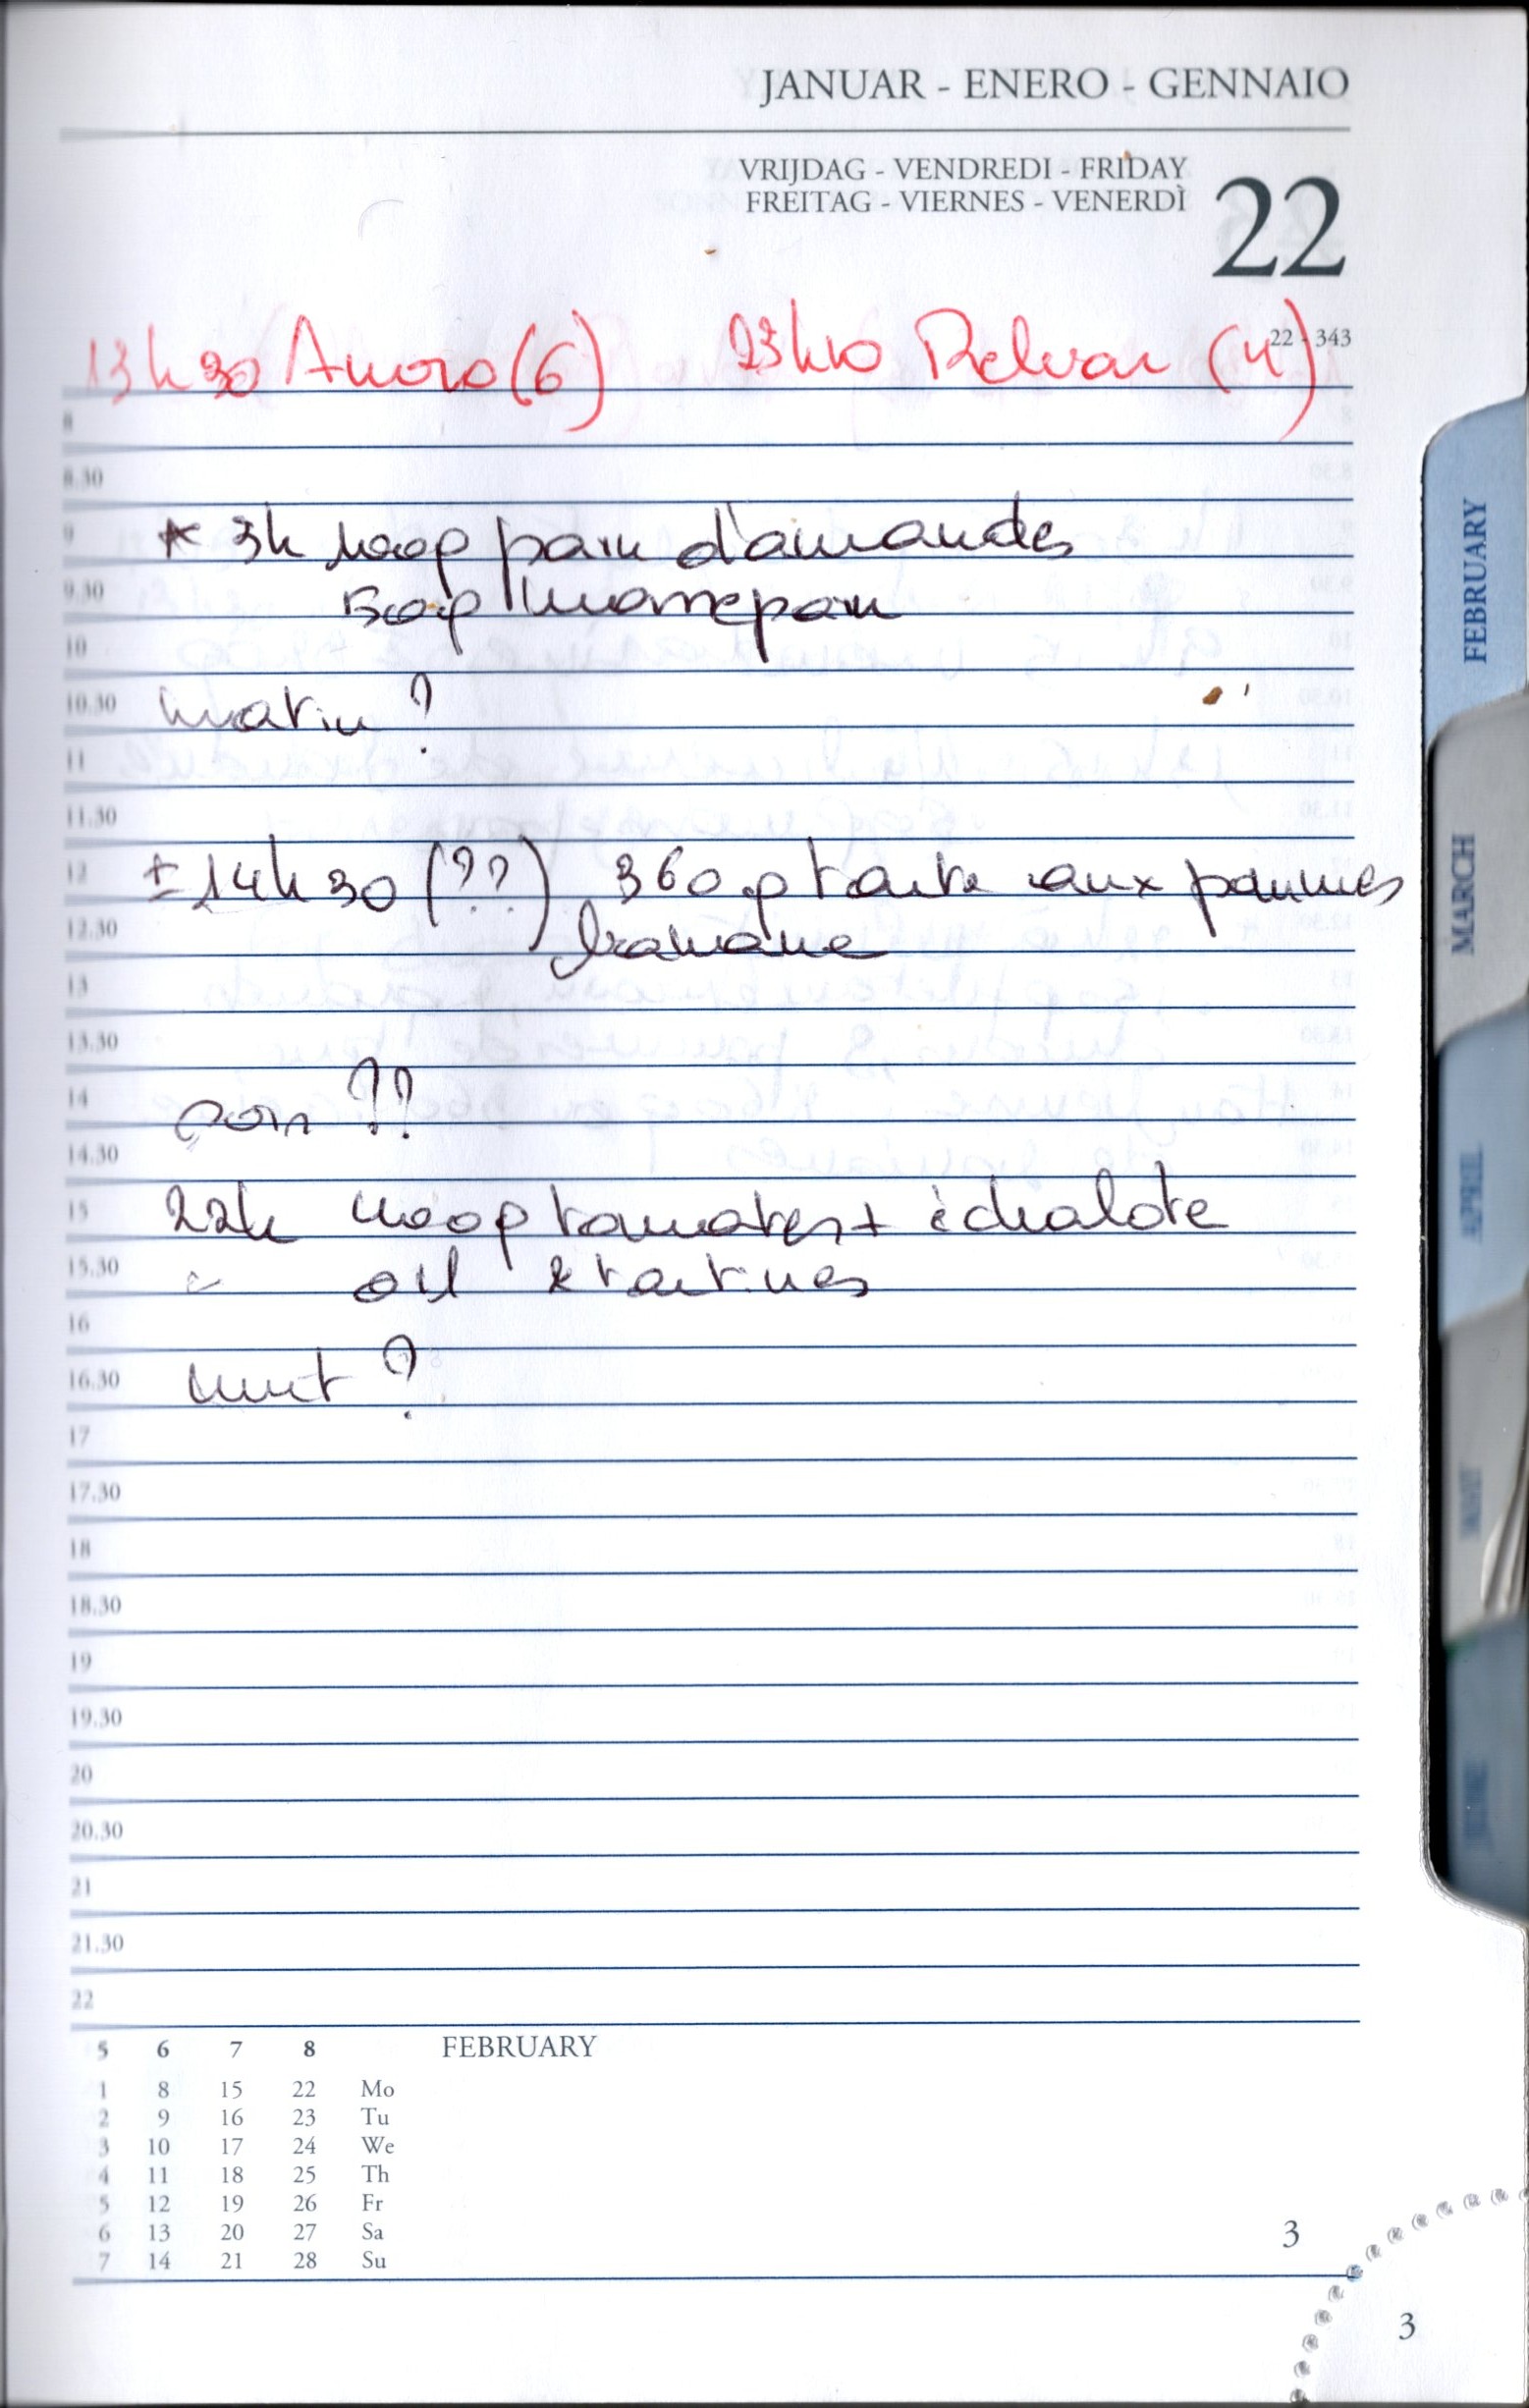 JANUAR - ENERO - GENNAIO
VRIJDAG - VENDREDI - FRIDAY
FREITAG - VIERNES - VENERDÌ
22
22 - 343
13h30 (6) 23h10 (4)
8
8.30
* 3h pain d'amandes
9
50g massepain
9.30
10
matin ?
10.30
11
11.30
± 14h30 (??) 360g tarte aux pommes
12
banane
12.30
13
13.30
soir ??
14
14.30
22h tomates + échalote
15
oil & tartines
15.30
16
nuit ?
16.30
17
17.30
18
18.30
19
19.30
20
20.30
21
21.30
22
5 6 7 8 FEBRUARY
1 8 15 22 Mo
2 9 16 23 Tu
3 10 17 24 We
4 11 18 25 Th
5 12 19 26 Fr
6 13 20 27 Sa
7 14 21 28 Su
3
3
FEBRUARY
MARCH
APRIL